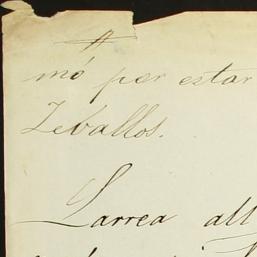 mó por estar
Zeballos.
Larrea all